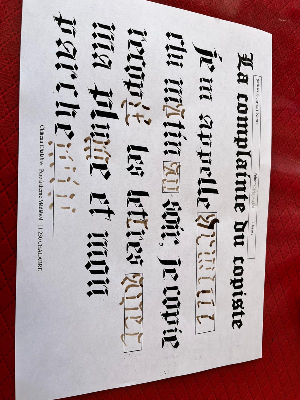 La complainte du copiste
je m appelle
du matin au soir, je copie
recopie les lettres avec
ma plume et mon
parchemin